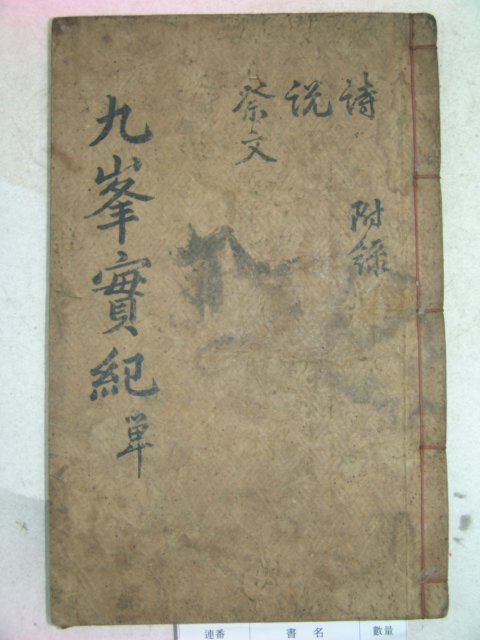 詩
說
祭文
附錄
九峯實紀 单
連番 書名 數量